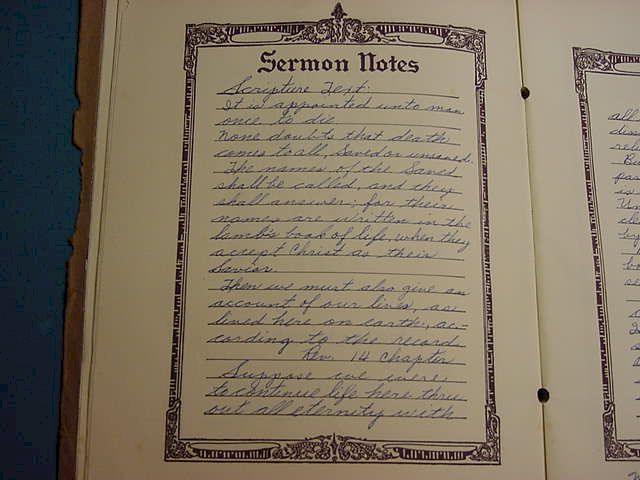 Sermon Notes
Scripture Text:
It is appointed unto man
once to die
None doubts that death
comes to all, Saved or unsaved.
The names of the Saved
shall be called, and they
shall answer; for their
names are written in the
lamb's book of life, when they
accept Christ as their
Savior.
Then we must also give an
account of our lives, as
lived here on earth, ac-
cording to the record
Rev. 14 Chapter
Suppose we were
to continue life here thru
out all eternity with
all
diss
rele
Bu
pas
is
cle
by
bo
se